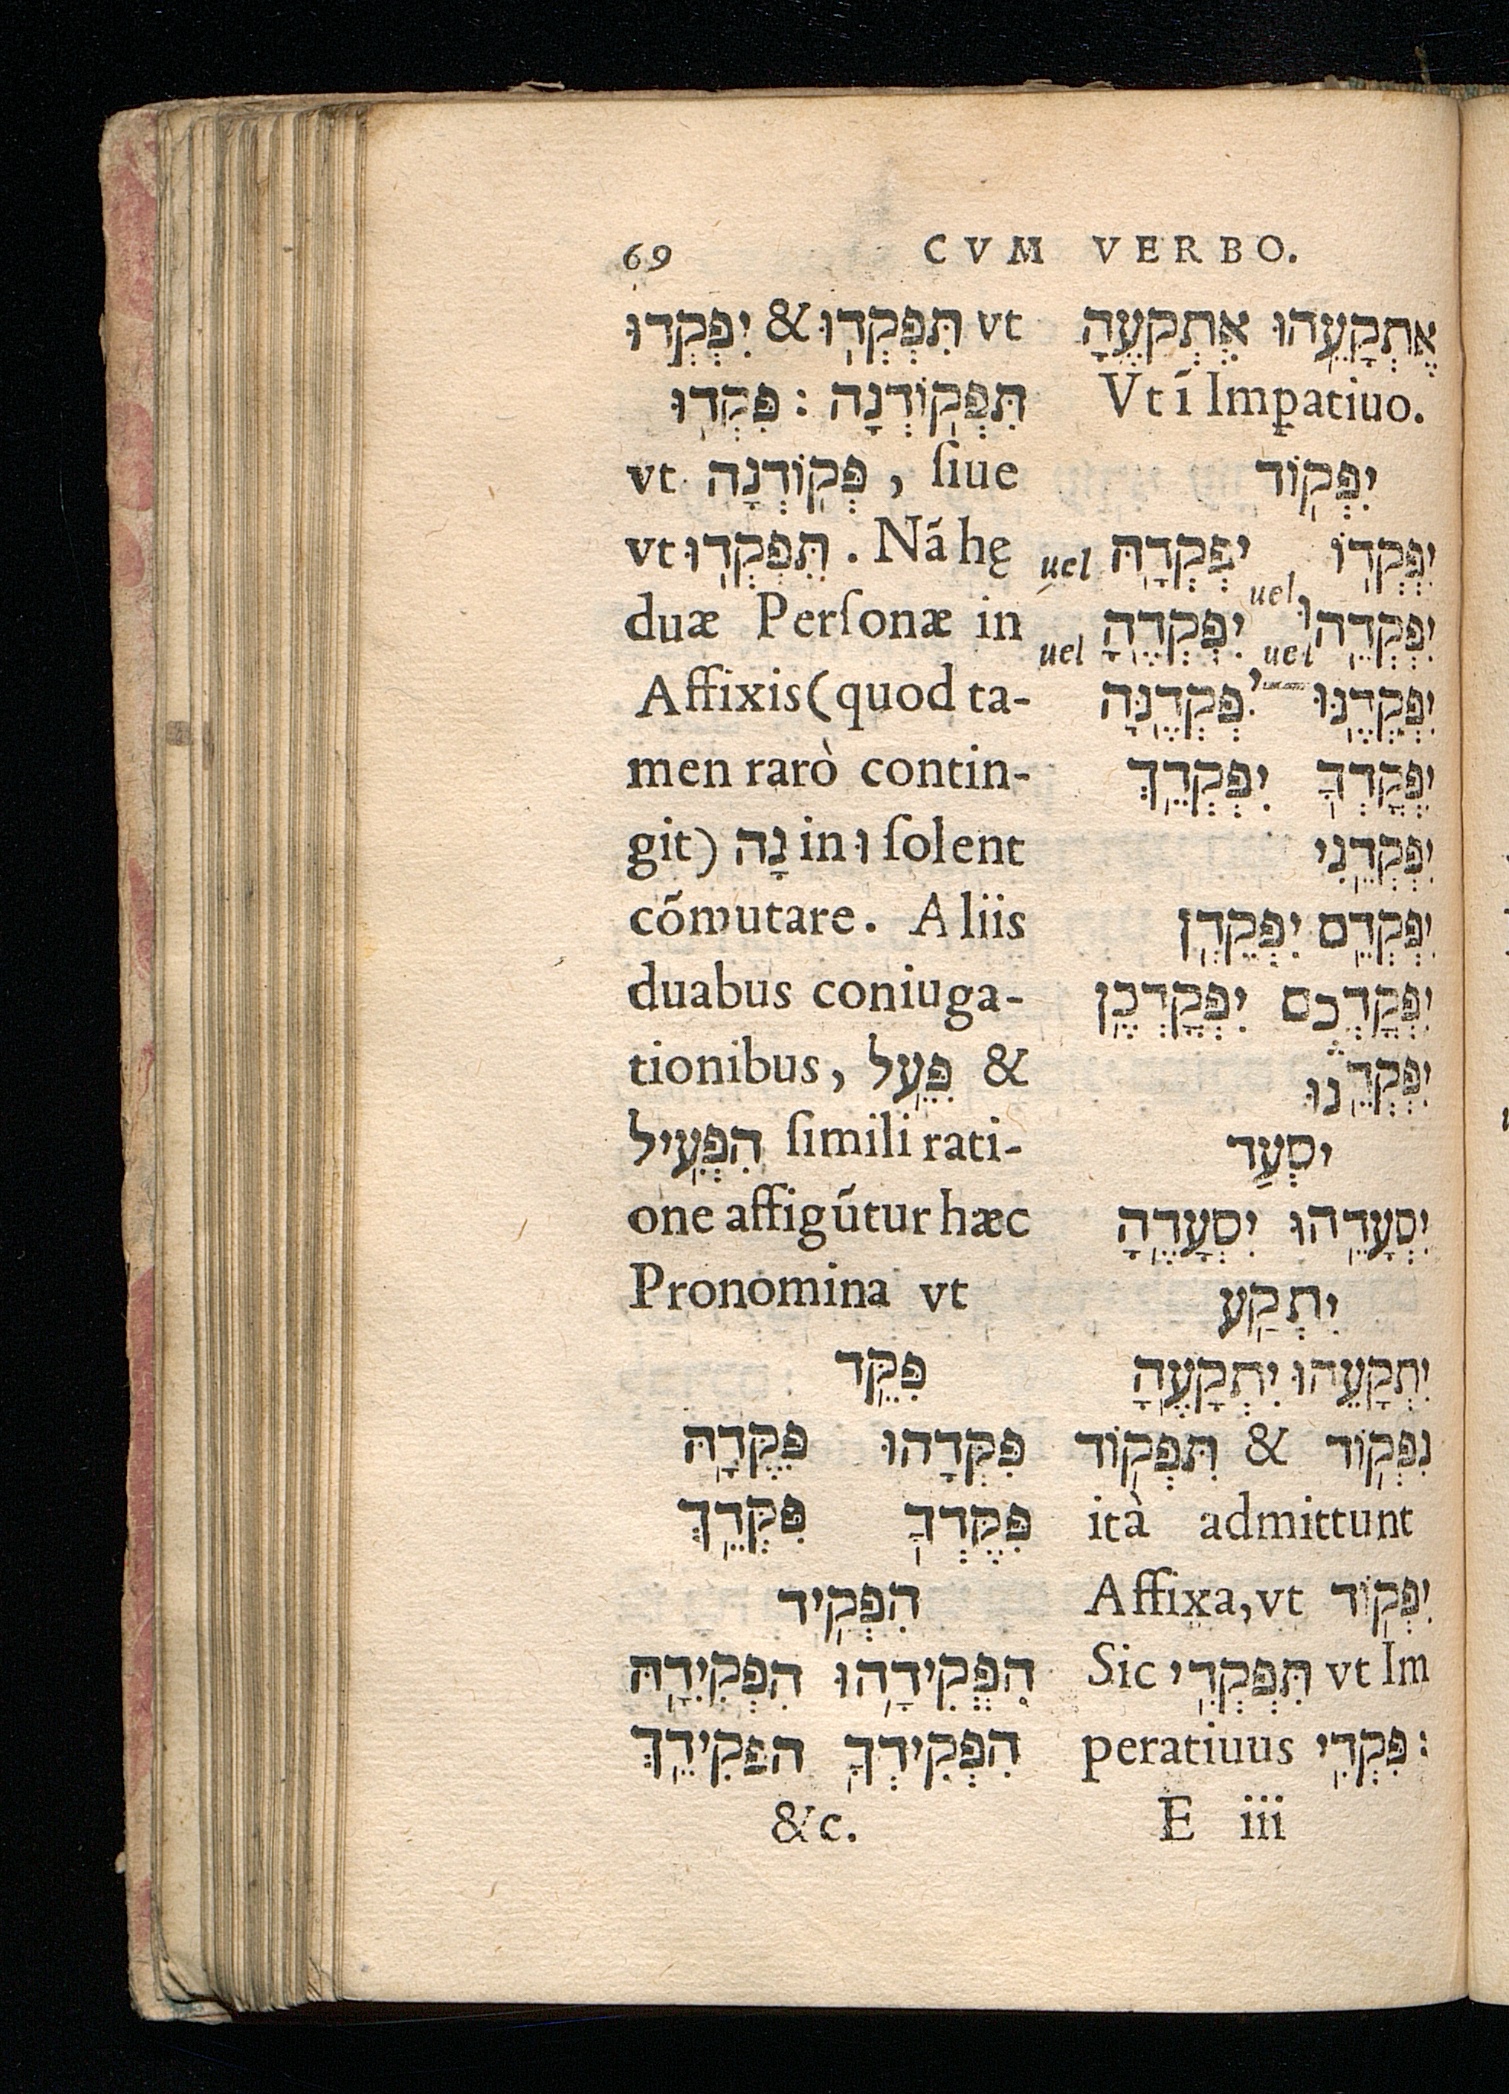 69 CVM VERBO.
אֶתְקָעֵהוּ אֶתְקָעֶהָ
Vt ĩ Imꝑatiuo.
יִפְקוֹד
יִפְקְדוֹ יִפְקְדָהּ uel
uel
יִפְקְדֵהוּ יִפְקְדֶהָ uel
uel
יִפְקְדֶנּוּ יִפְקְדֶנָּה
יִפְקָדְךָ יִפְקְדֵךְ
יִפְקְדֵנִי
יִפְקְדֵם יִפְקְדֵן
יִפְקָדְכֶם יִפְקָדְכֶן
יִפְקְדֵנוּ
יִסְעַד
יִסְעָדֵהוּ יִסְעָדֶהָ
יִתְקַע
יִתְקָעֵהוּ יִתְקָעֶהָ
נִפְקוֹד & תִּפְקוֹד
ità admittunt
Affixa, vt יִפְקוֹד
Sic תִּפְקְדִי vt Im
peratiuus פִּקְדִי:
E iii
יִפְקְדוּ & תִּפְקְדוּ vt
תִּפְקוֹדְנָה : פִּקְדוּ
vt פְּקוֹדְנָה, ſiue
vt תִּפְקְדוּ. Nã hę
duæ Perſonæ in
Affixis (quod ta-
men rarò contin-
git) נָה in וּ ſolent
cõmutare. Aliis
duabus coniuga-
tionibus, פִּעֵל &
הִפְעִיל ſimili rati-
one affigũtur hæc
Pronomina vt
פִּקֵּד
פִּקְּדָהוּ פִּקְּדָהּ
פִּקֶּדְךָ פִּקְּדֵךְ
הִפְקִיד
הִפְקִידָהוּ הִפְקִידָהּ
הִפְקִידְךָ הפְקִידֵךְ
&c.